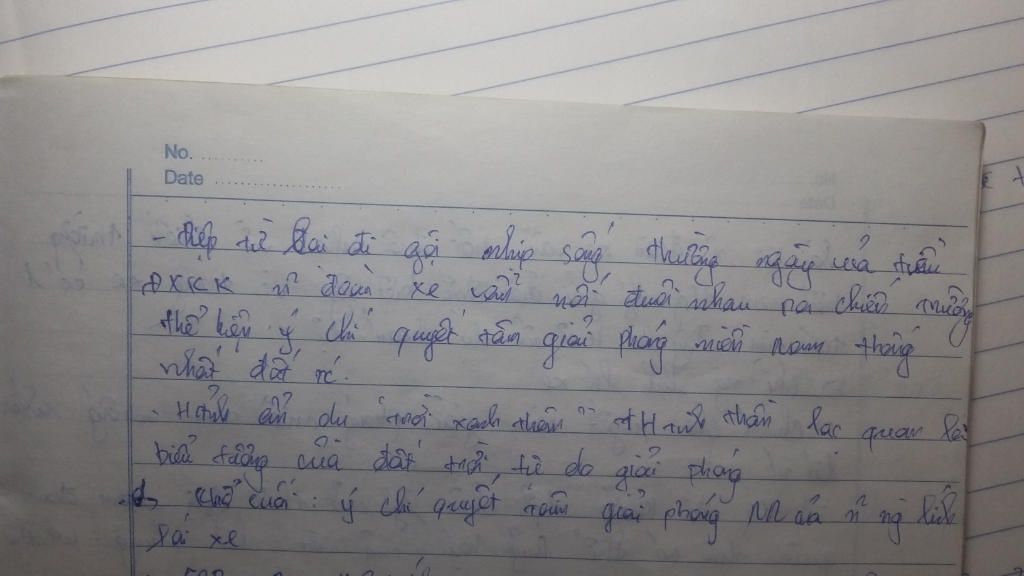 No. ...........
Date .....................
- Điệp từ lại đi gợi nhịp sống thường ngày của tuần
ĐKKK n~ đoàn xe vẫn nối đuôi nhau ra chiến trường
thể hiện ý chí quyết tâm giải phóng miền nam thống
nhất đất nc.
- H.ảnh ẩn dụ "trời xanh thêm" tinh thần lạc quan là
biểu tượng của đất trời, tự do giải phóng
d, Khổ cuối : ý chí quyết tâm giải phóng MN của n~ ng lính
lái xe